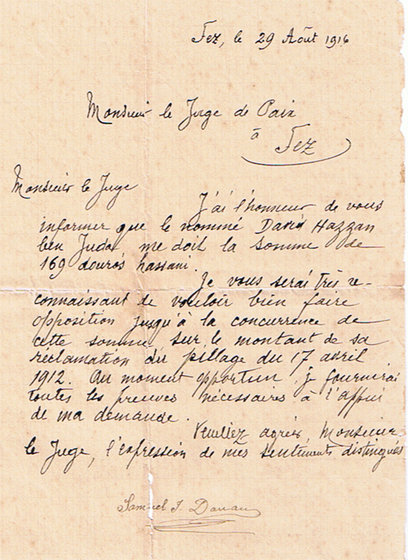 Fez, le 29 Août 1916
Monsieur le Juge de Paix
à
Fez
Monsieur le Juge
J'ai l'honneur de vous
informer que le nommé David Hazzan
ben Juda me doit la somme de
169 douros hassani.
Je vous serai très re-
connaissant de vouloir bien faire
opposition jusqu'à la concurrence de
cette somme sur le montant de sa
réclamation du pillage du 17 avril
1912. Au moment opportun, je fournirai
toutes les preuves nécessaires à l'appui
de ma demande.
Veuillez agréer, Monsieur
le Juge, l'expression de mes sentiments distingués
Samuel J. Danan